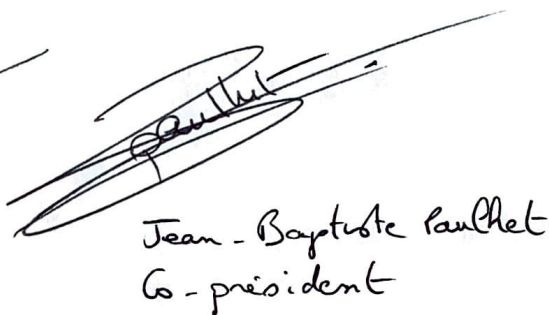 Jean - Baptiste Paulhet
Co - président